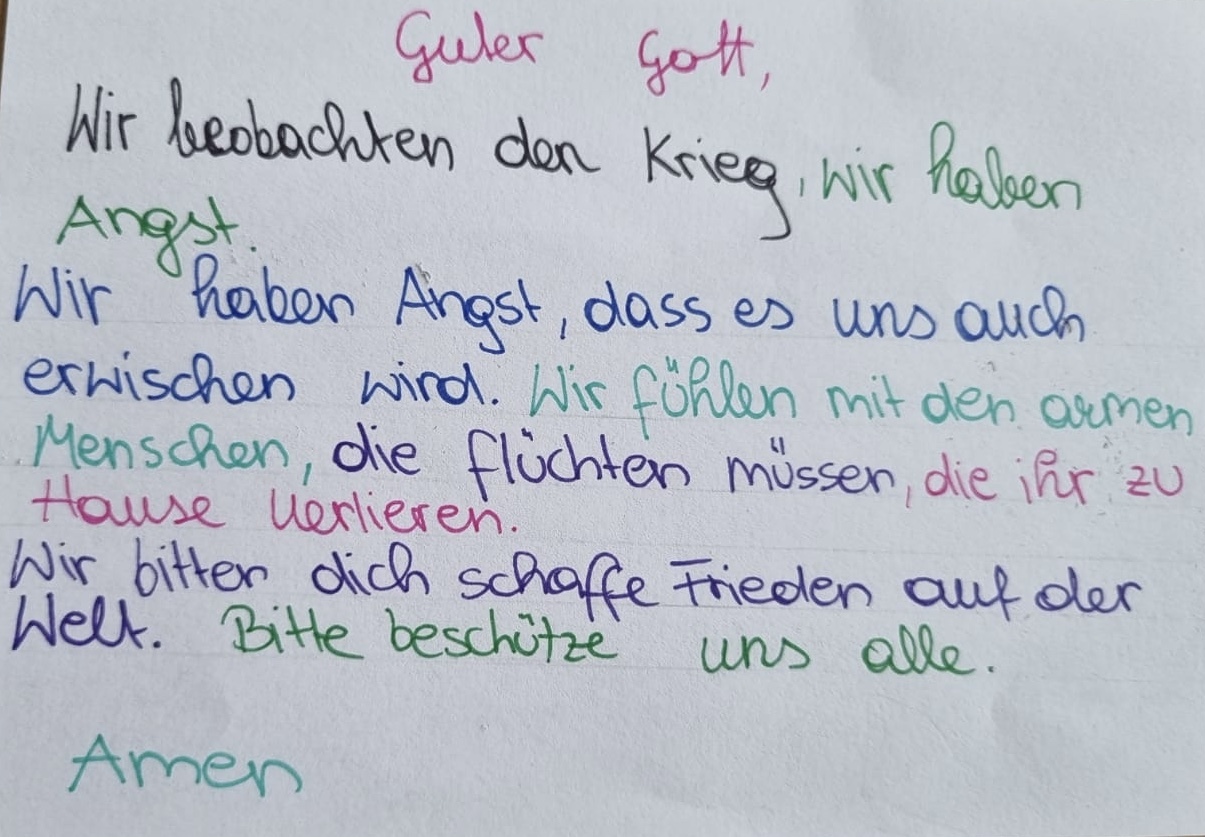 Guter Gott,
Wir beobachten den Krieg, wir haben
Angst.
Wir haben Angst, dass es uns auch
erwischen wird. Wir fühlen mit den armen
Menschen, die flüchten müssen, die ihr zu
Hause verlieren.
Wir bitten dich schaffe Frieden auf der
Welt. Bitte beschütze uns alle.
Amen